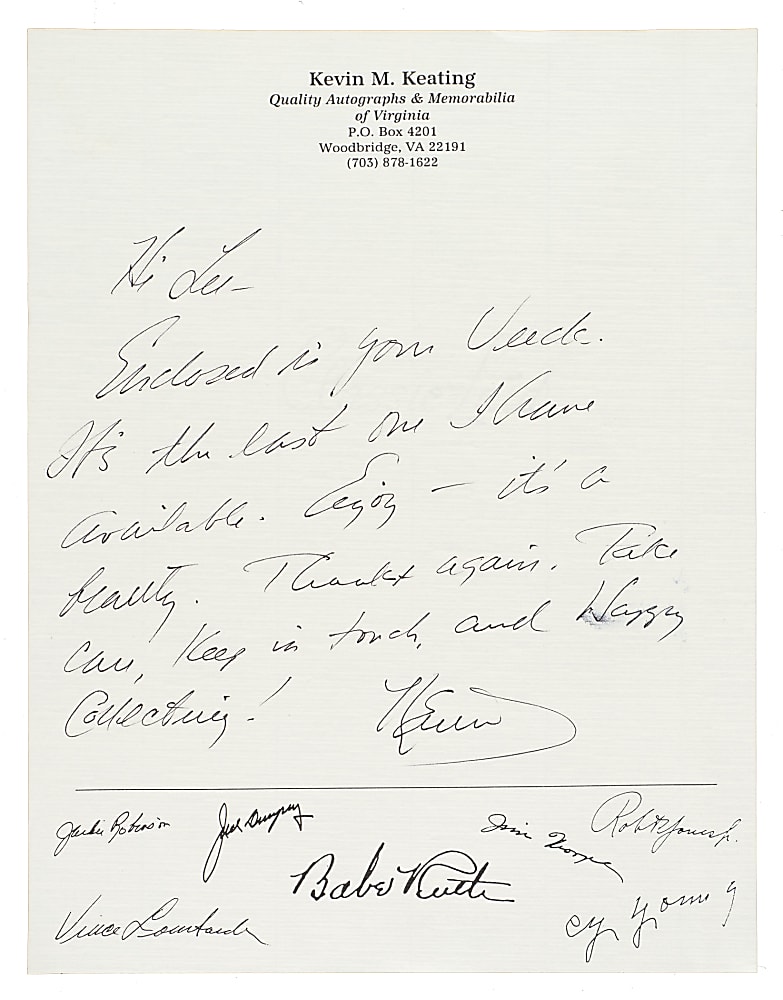 Kevin M. Keating
Quality Autographs & Memorabilia
of Virginia
P.O. Box 4201
Woodbridge, VA 22191
(703) 878-1622
Hi Lee-
Enclosed is your Veeck.
It's the last one I have
available. Enjoy - it's a
beauty. Thanks again. Take
care, Keep in touch, and Happy
Collecting! Kevin
Jackie Robinson Jack Dempsey Jim Thorpe Robt T Jones Jr.
Babe Ruth
Vince Lombardi Cy Young